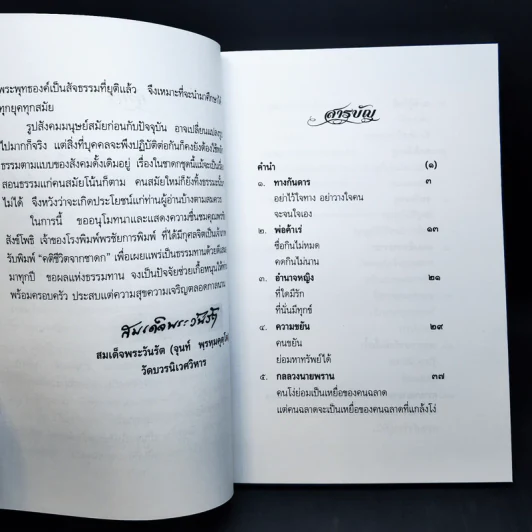 พระพุทธองค์เป็นสัจธรรมที่ยุติแล้ว จึงเหมาะที่จะนำมาศึกษาได้
ทุกยุคทุกสมัย
รูปสังคมมนุษย์สมัยก่อนกับปัจจุบัน อาจเปลี่ยนแปลง
ไปมากก็จริง แต่สิ่งที่บุคคลจะพึงปฏิบัติต่อกันก็คงยังต้องใช้
ธรรมตามแบบของสังคมดั้งเดิมอยู่ เรื่องในชาดกชุดนี้แม้จะเป็น
สอนธรรมแก่คนสมัยโน้นก็ตาม คนสมัยใหม่ก็ยังทิ้งธรรม
ไม่ได้ จึงหวังว่าจะเกิดประโยชน์แก่ท่านผู้อ่านบ้างตามสมควร
ในการนี้ ขออนุโมทนาและแสดงความชื่นชมคุณพรชัย
สังข์โพธิ์ เจ้าของโรงพิมพ์พรชัยการพิมพ์ ที่ได้มีกุศลจิตเป็นเจ้าภาพ
รับพิมพ์ “คติชีวิตจากชาดก” เพื่อเผยแพร่เป็นธรรมทานด้วยดี
มาทุกปี ขอผลแห่งธรรมทาน จงเป็นปัจจัยช่วยเกื้อหนุนให้
พร้อมครอบครัว ประสบแต่ความสุขความเจริญตลอดกาลนาน
สมเด็จพระวันรัต
สมเด็จพระวันรัต (จุนท์ พฺรหฺมคุตฺโต)
วัดบวรนิเวศวิหาร
สารบัญ
คำนำ (๑)
๑. ทางกันดาร ๓
อย่าไว้ใจทาง อย่าวางใจคน
จะจนใจเอง
๒. พ่อค้าเร่ ๑๓
ซื่อกินไม่หมด
คดกินไม่นาน
๓. อำนาจหญิง ๒๑
ที่ใดมีรัก
ที่นั่นมีทุกข์
๔. ความขยัน ๒๙
คนขยัน
ย่อมหาทรัพย์ได้
๕. กลลวงนายพราน ๓๗
คนโง่ย่อมเป็นเหยื่อของคนฉลาด
แต่คนฉลาดจะเป็นเหยื่อของคนฉลาดที่แกล้งโง่